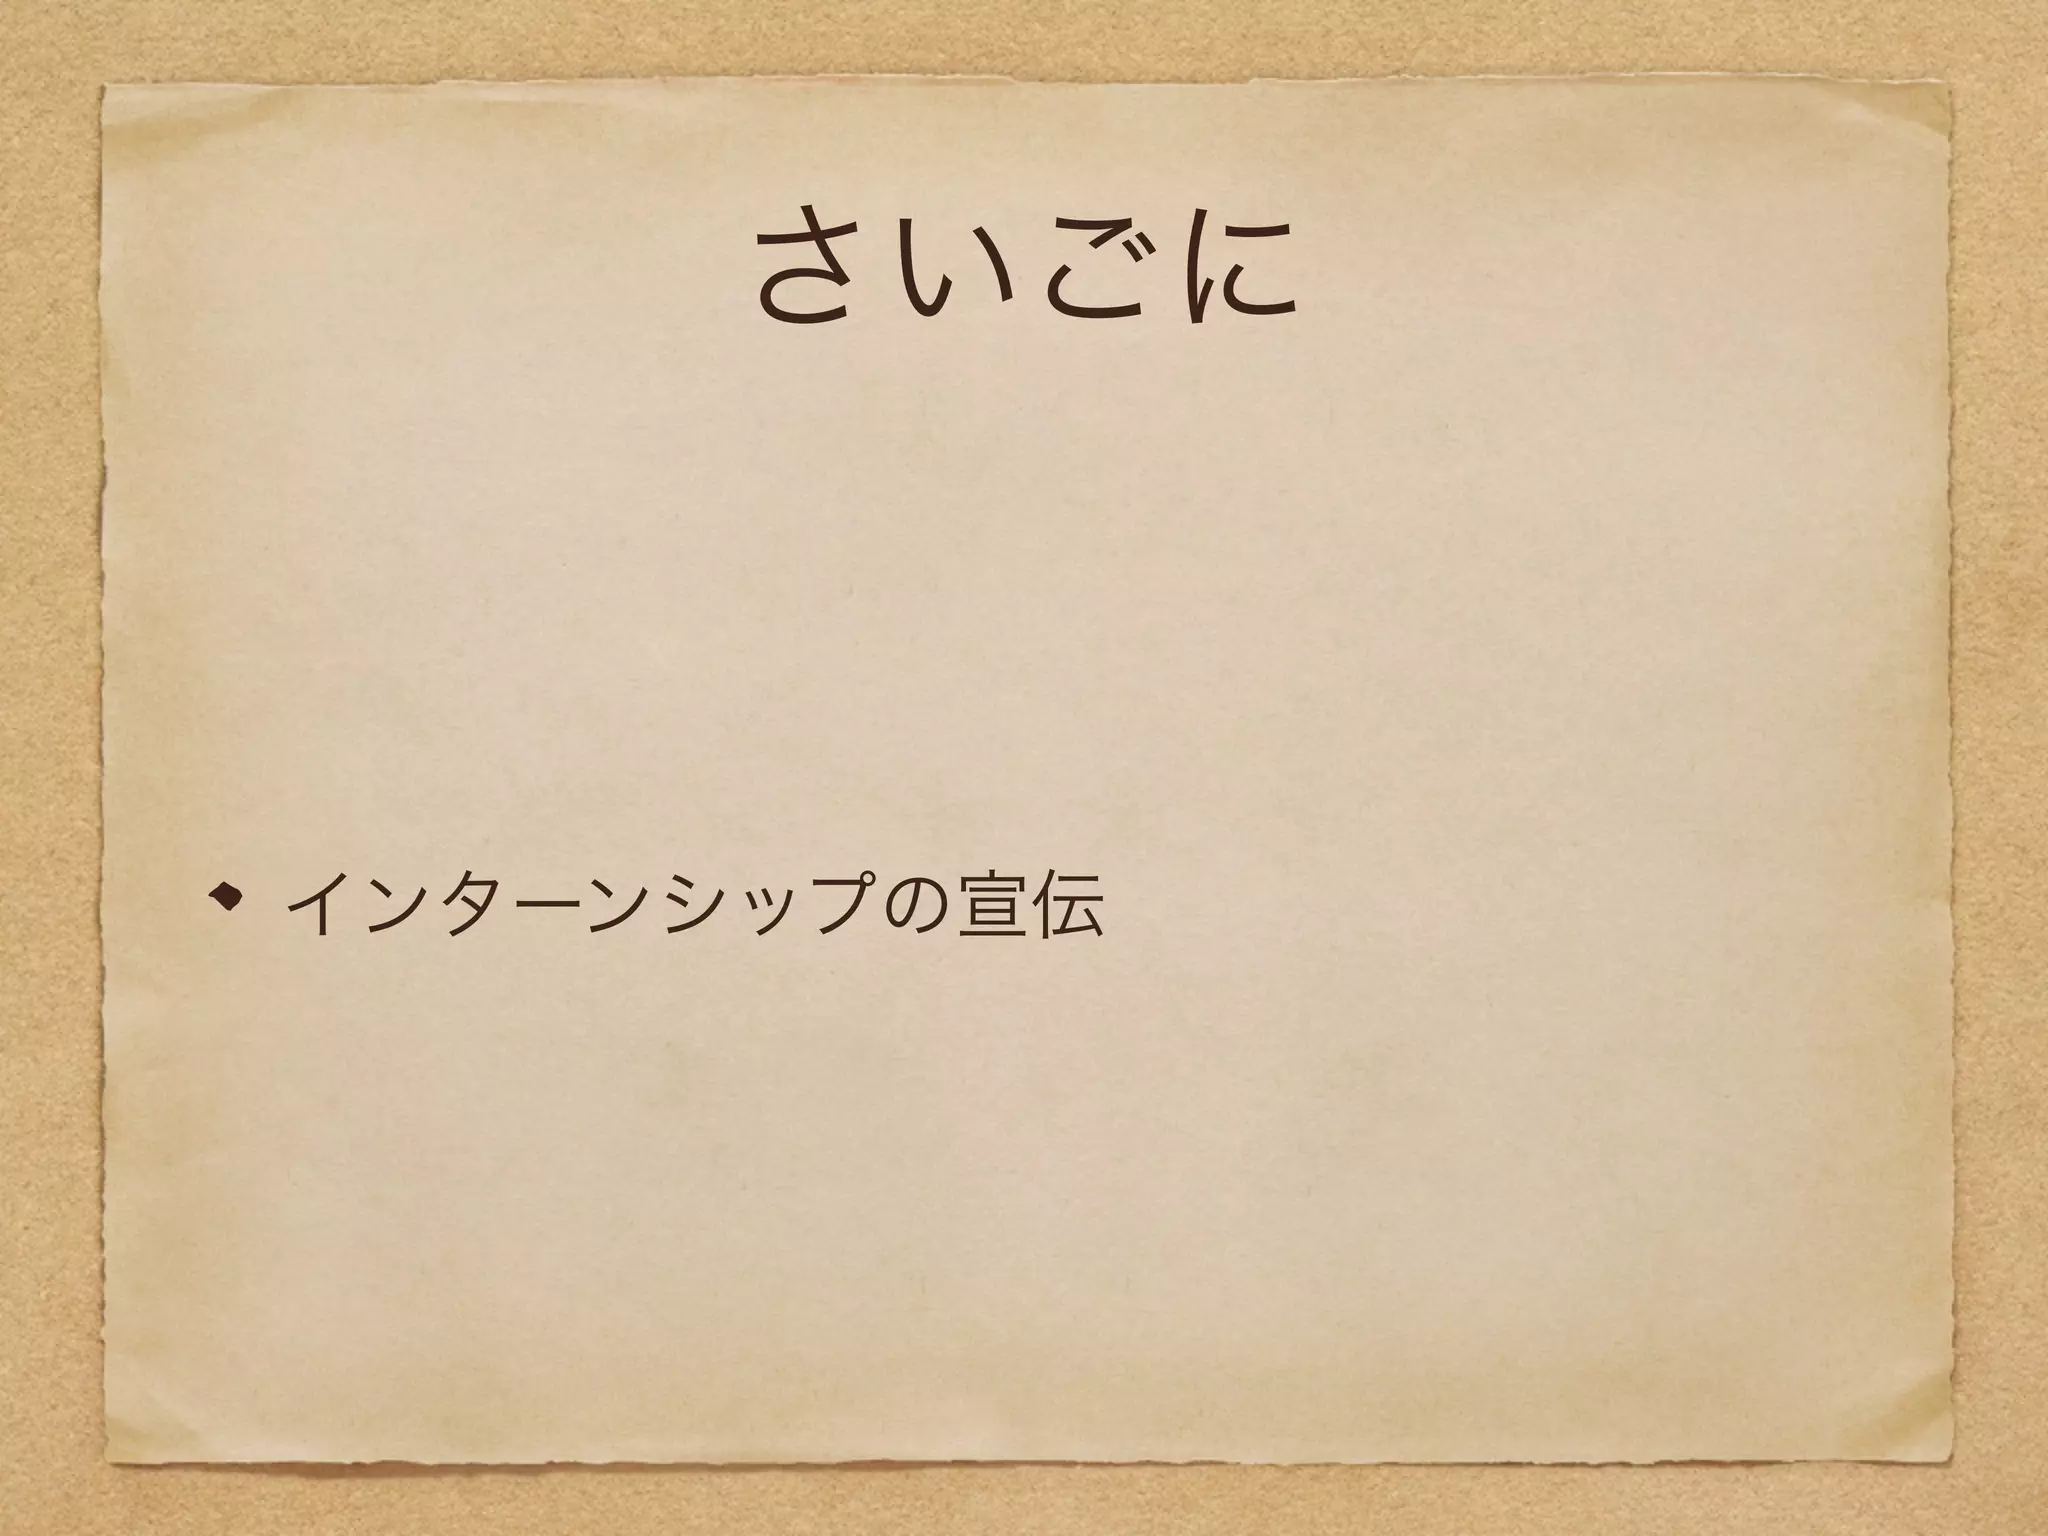 さいごに
• インターンシップの宣伝